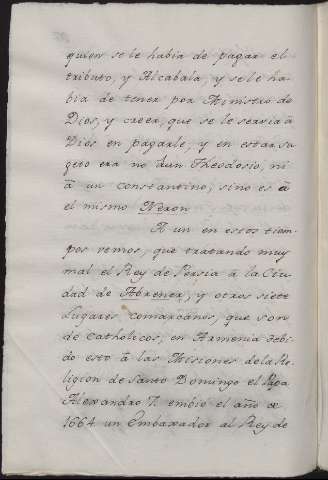 quien se le habia de pagar el
tributo, y Alcabala, y se le ha-
bia de tener por Ministro de
Dios, y creer, que se le servia à
Dios en pagarle, y en estar su
geto era no à un Theodosio, ni
à un constantino, sino es à
el mismo Neron
A un en estos tiem-
pos vemos, que tratando muy
mal el Rey de Persia à la Ciu-
dad de Abrener, y otros siete
Lugares comarcanos, que son
de Catholicos, en Armenia debi
do esto à las Misiones de la Re-
ligion de Santo Domingo el Papa
Alexandro 7. embiò el año de
1664 un Embaxador al Rey de